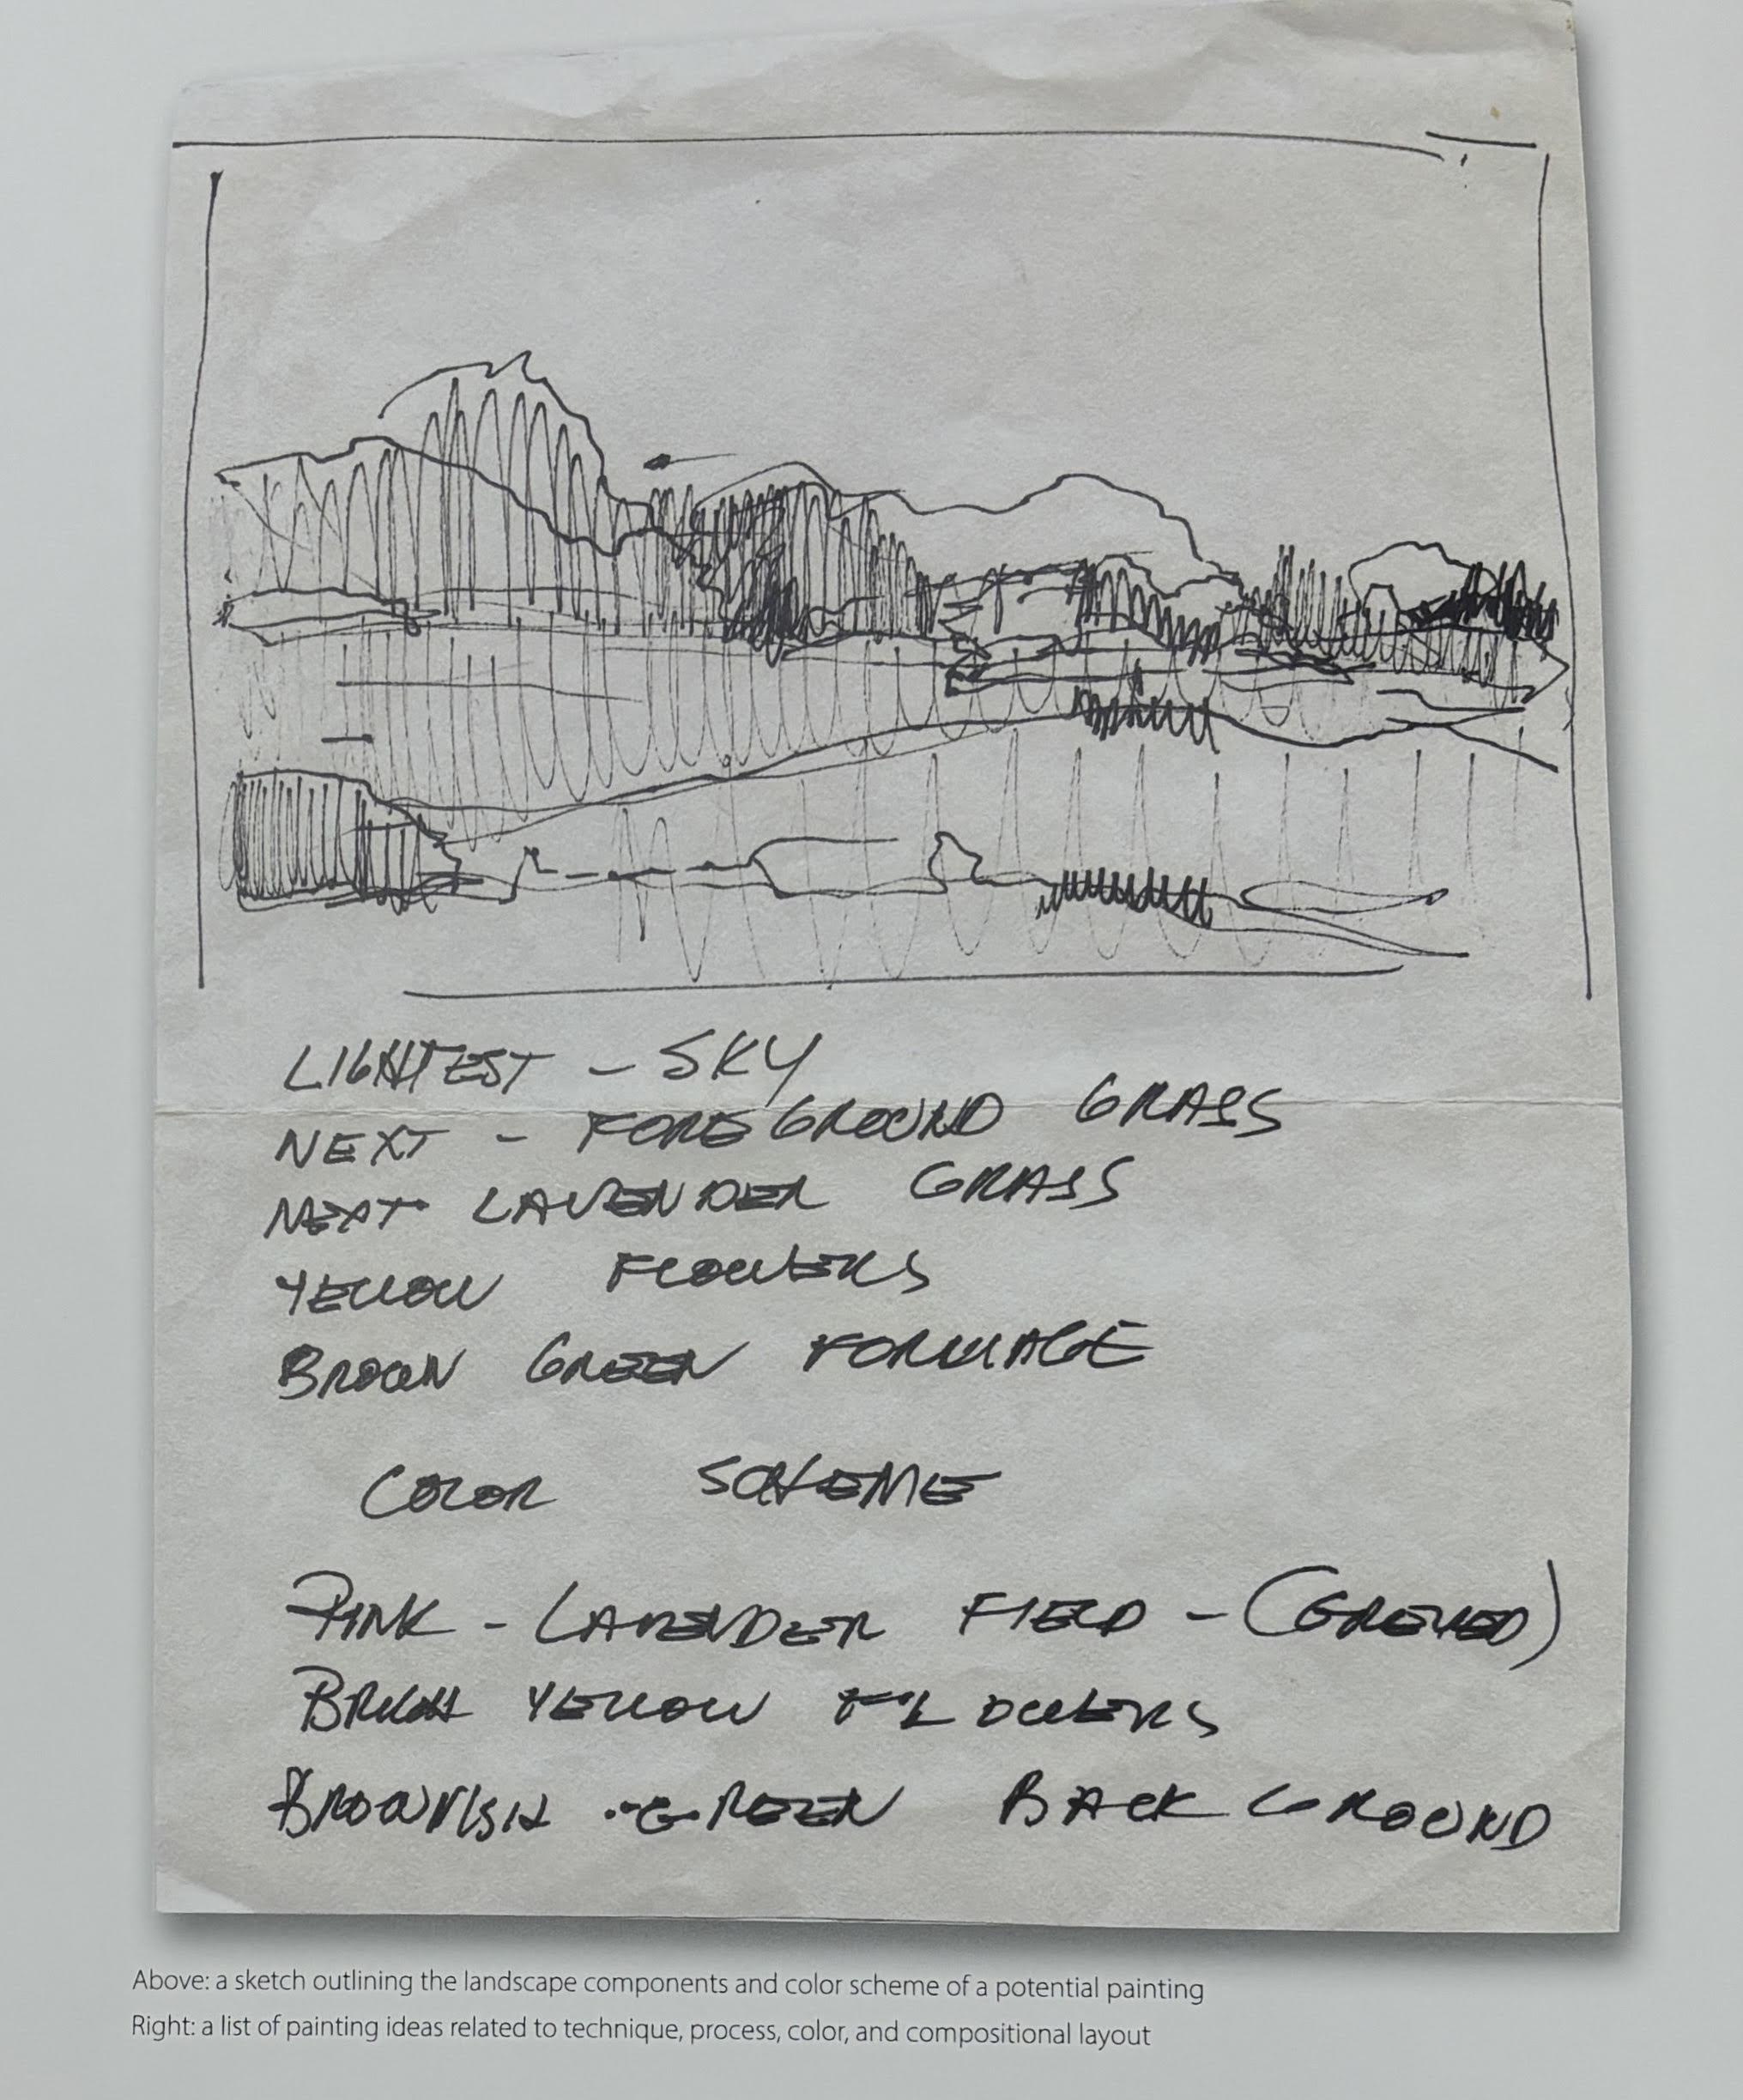 LIGHTEST - SKY
NEXT - FOREGROUND GRASS
NEXT LAVENDER GRASS
YELLOW FLOWERS
BROWN GREEN FORLIAGE
COLOR SCHEME
PINK - LAVENDER FIELD - (GREYED)
BRIGHT YELLOW FLOWERS
BROWNISH - GREEN BACKGROUND
Above: a sketch outlining the landscape components and color scheme of a potential painting
Right: a list of painting ideas related to technique, process, color, and compositional layout